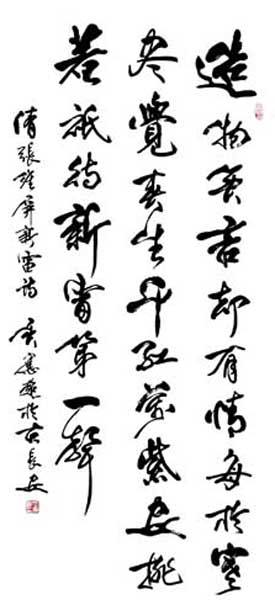 造物無言却有情每於寒
尽覺春生千紅萬紫安排
著祇待新雷第一聲
清張維屏新雷詩 於古長安